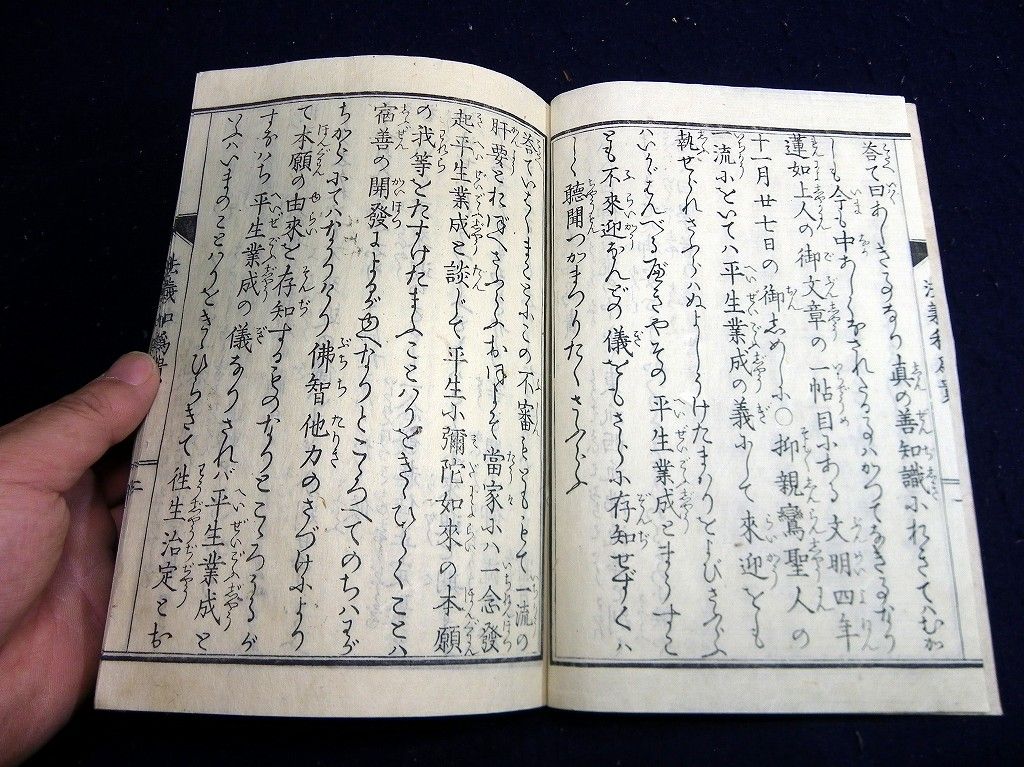 答て曰あしきるなり真の善知識にれきてハむか
しも今も中あしくなされたる〻ハかつてなきるなり
蓮如上人の御文章の一帖目にある文明四年
十一月廿七日の御しめしに〇抑親鸞聖人の
一流にをいてハ平生業成の義にして來迎をも
執せられさふらハぬよしうけたまハりをよひさふらふ
ハいかゞはんへるべきやその平生業成とまうすこ
とも不來迎なんどの儀をもさらに存知せずくハ
しく聽聞つかまつりたくさふらふ
答ていはくまことにこの不審もとももて一流の
肝要とおぼへさふらふおほよそ當家にハ一念發
起平生業成と談じて平生に彌陀如來の本願
の我等をたすけたまふことハりをきゝひらくことハ
宿善の開發によるがゆへなりとこゝろへてのちハわが
ちからにてハなかりけり佛智他力のさづけにより
て本願の由來を存知するものなりとこゝろうるが
すなハち平生業成の儀なりされバ平生業成と
いふハいまのことハりをきゝひらきて往生治定とお